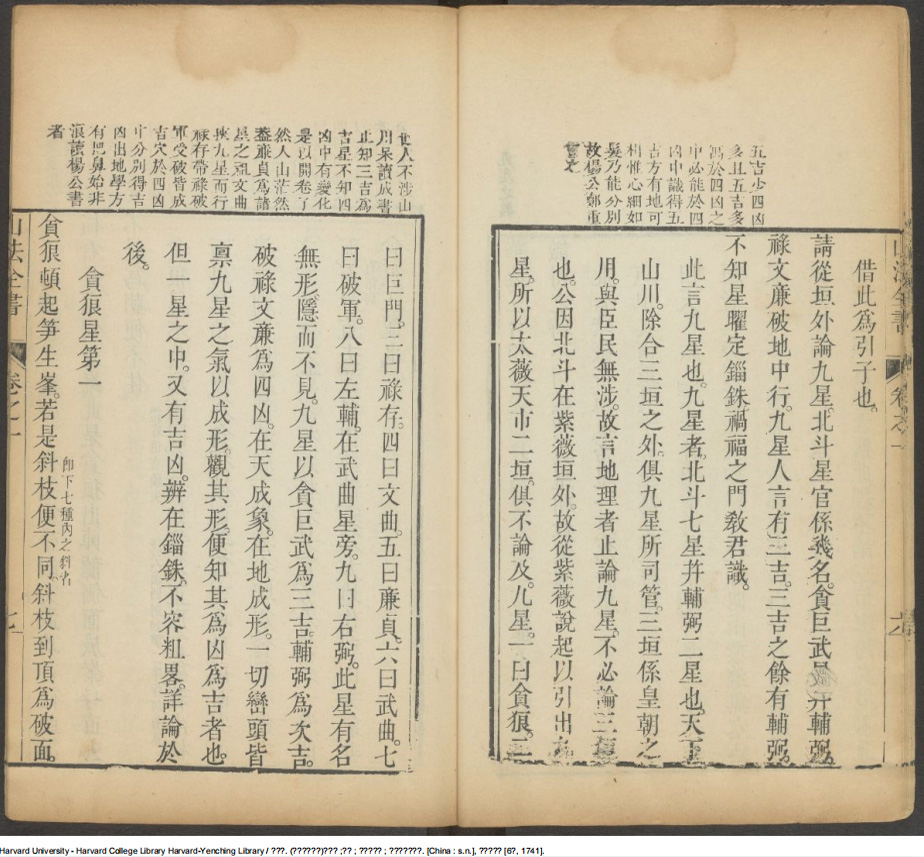 五吉少四凶
多且五吉多
混於四凶之
中必能於四
凶中識得五
吉方有地可
相惟心細如
髮乃能分別
故楊公鄭重
言之
借此為引子也。
請從垣外論九星。北斗星官係幾名。貪巨武星并輔弼。
祿文廉破地中行。九星人言有三吉。三吉之餘有輔弼。
不知星曜定錙銖。禍福之門教君識。
此言九星也。九星者。北斗七星并輔弼二星也。天下
山川。除合三垣之外。俱九星所司管。三垣係皇朝之
用。與臣民無涉。故言地理者止論九星。不必論三垣
也。公因北斗在紫薇垣外。故從紫薇說起以引出九
星。所以太薇天市二垣。俱不論及。九星。一曰貪狼。二
山法全書
卷之一
六
世人不涉山
川呆讀成書
止知三吉為
吉星不知四
凶中有變化
是以開卷了
然人山茫然
蓋廉貞為諸
星之祖文曲
挾九星而行
祿存帶祿破
軍受破皆成
吉穴於四凶
中分別得吉
凶出地學方
有把鼻始非
浪讀楊公書
者
曰巨門。三曰祿存。四曰文曲。五曰廉貞。六曰武曲。七
曰破軍。八曰左輔。在武曲星旁。九曰右弼。此星有名
無形。隱而不見。九星以貪巨武為三吉。輔弼為次吉。
破祿文廉為四凶。在天成象。在地成形。一切巒頭皆
稟九星之氣以成形。觀其形。便知其為凶為吉者也。
但一星之中。又有吉凶。辨在錙銖。不容粗畧。詳論於
後。
貪狼星第一
貪狼頓起笋生峯。若是斜枝便不同。斜枝到頂為破面。
卽下七種內之斜者
山法全書
卷之一
七
Harvard University - Harvard College Library Harvard-Yenching Library / ???. (??????)??? ;?? ; ????? ; ???????. [China : s.n.], ????? [6?, 1741].